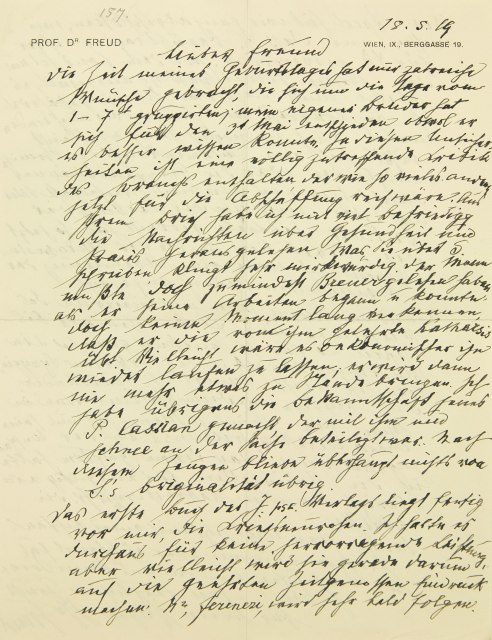 157.
18.5.19
PROF. DR FREUD
WIEN, IX., BERGGASSE 19.
Lieber Freund
Die Zeit meines Geburtstages hat mir zahlreiche
Wünsche gebracht die sich um die Tage vom
1–7 gruppirten; mein eigener Bruder hat
sich für den Mai entschieden obwol er
es besser wissen konnte. In diesen Unsicher-
heiten ist eine völlig zutreffende Kritik
des Brauchs enthalten der wie so vieles andere
jetzt für die Abschaffung reif wäre. Aus
Ihrem Brief habe ich mit viel Befriedigg
die Nachrichten über Gesundheit und
Praxis herausgelesen. Was Sie über S.
schreiben klingt sehr merkwürdig. Der Mann
mußte doch zumindest Breuer gelesen haben
als er seine Arbeiten begann u konnte
doch keinen Moment lang verkennen,
daß er die von ihm gelehrte Katharsis
übt. Vielleicht wäre es oekonomischer ihn
wieder laufen zu lassen, er wird dann
nie mehr etwas zu Stande bringen. Ich
habe übrigens die Bekanntschaft jenes
P. Cassian gemacht der mit ihm und
Schnee an der Sache beteiligt war. Nach
diesem Zeugen bliebe überhaupt nichts von
S.'s Originalität übrig.
Das erste Buch des I. psa. Verlags liegt fertig
vor mir, die Kriegsneurosen. Ich halte es
durchaus für keine hervorragende Leistung,
aber vielleicht wird sie gerade darum
auf die geehrten Zeitgenossen Eindruck
machen. Ferenczi, wird sehr bald folgen.